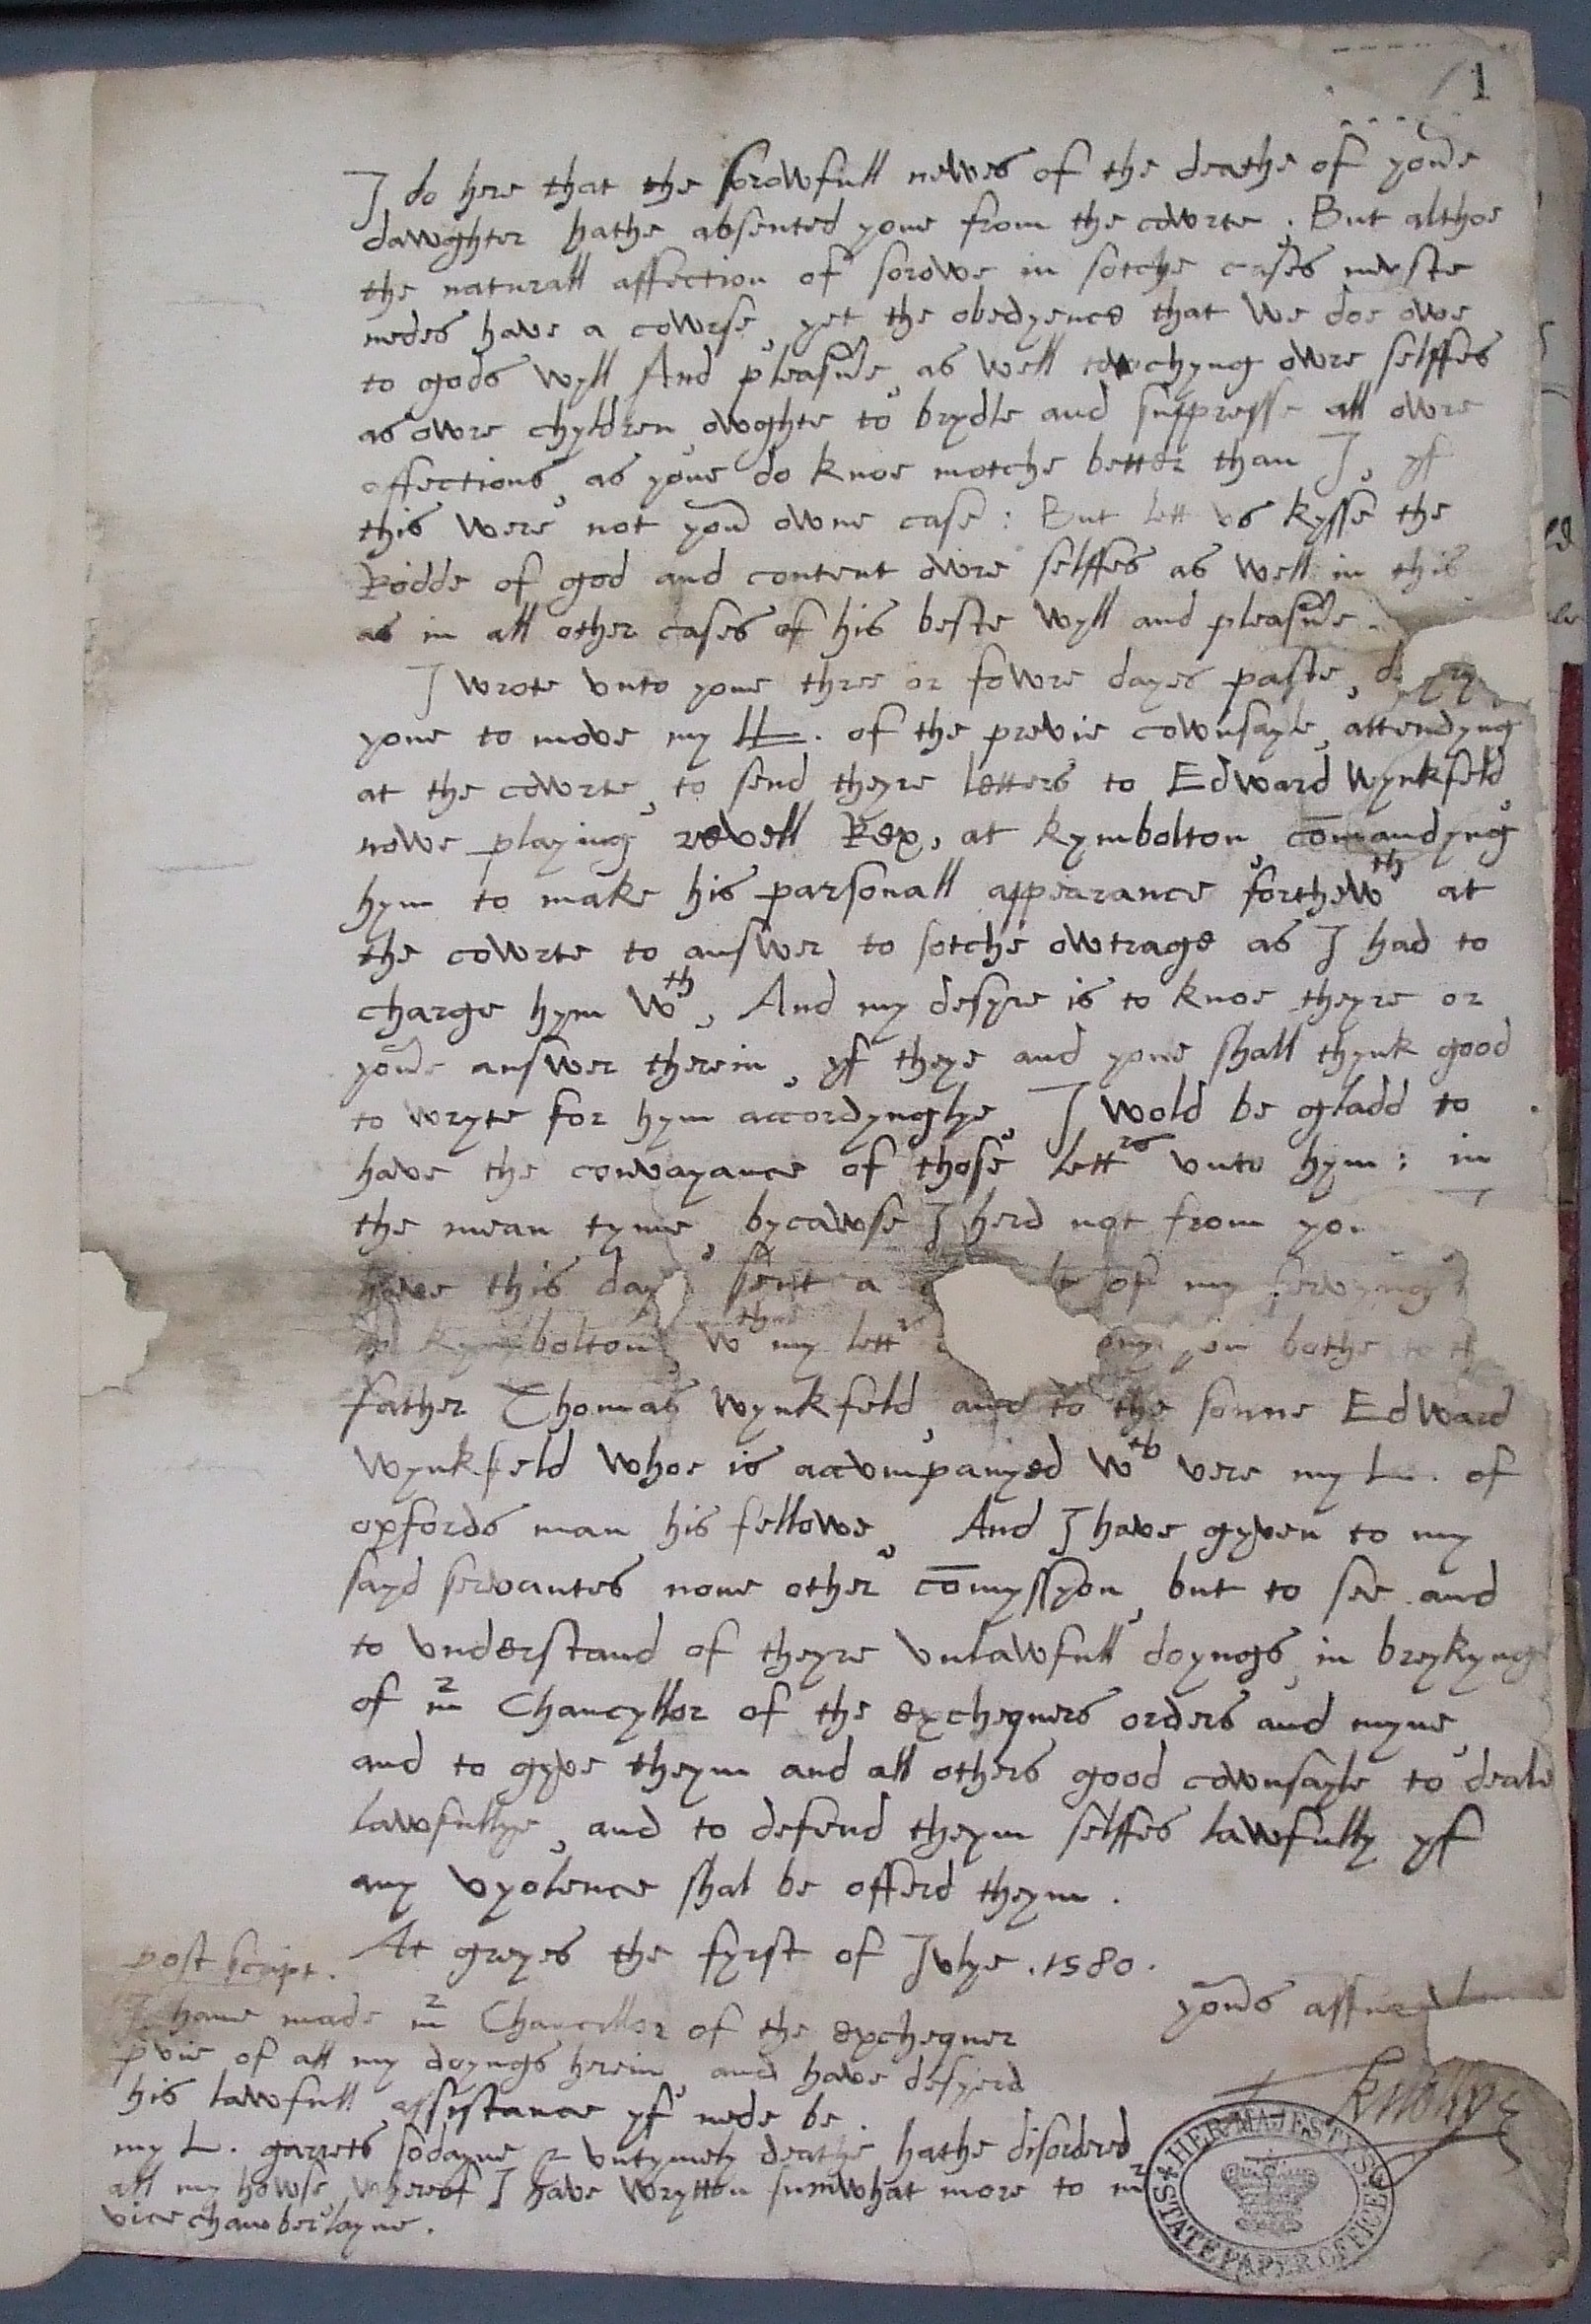 1
I do here that the sorowfull newes of the deathe of youre
dawghter hathe absented youe from the cowrte. But althoe
the naturall affection of sorowe in sotche cases mvste
nedes have a cowrse, yet the obedyence that we doe owe
to gods wyll And pleasure, as well towchyng owre selffes
as owre chyldren, owghte to brydle and suppresse all owre
affections, as youe do knoe motche better than I, yf
this were not your owne case: But lett vs kysse the
Rodde of god and content owre selffes as well in this
as in all other cases of his beste wyll and pleasure.
I wrote vnto youe three or fowre dayes paste,
youe to move my LL. of the previe cownsayle, attendyng
at the cowrte, to send theyre letters to Edward Wynkfeld,
nowe playing revell Rex, at Kymbolton, comandyng
hym to make his parsonall appearance forthewth at
the cowrte to answer to sotche owtrage as I had to
charge hym wth, And my desyre is to knoe theyre or
youre answer therein, yf theye and youe shall thynk good
to wryte for hym accordynglye, I wold be gladd to
have the convayance of those lettres vnto hym: in
the mean tyme, bycawse I herd not from
have this day sent a of my servyng
Kymbolton, wth my lettres bothe to
father Thomas Wynkfeld, and to the sonne Edward
Wynkfeld whoe is accumpanyed wth vere my L. of
oxfords man his fellowe, And I have gyven to my
sayd servantes none other comyssyon, but to see and
to vnderstand of theyre vnlawfull doyngs, in breykyng
of mr Chancyllor of the exchequers orders and myne,
and to gyve theym and all others good cownsayle to deale
lawfullye, and to defend theym selffes lawfully yf
any vyolence shal be offerd theym.
At greyes the fyrst of Jvlye .1580.
yours assured
FKnollys
post script.
I haue made mr Chancellor of the exchequer
pvie of all my doyngs herein, and have desyerd
his lawfull assystance yf nede be.
my L. garrets sodayne & vntymely deathe hathe disordered
all my howse, whereof I have wrytten sumwhat more to mr
vice chamberlayne.
HER MAJESTY'S
STATE PAPER OFFICE